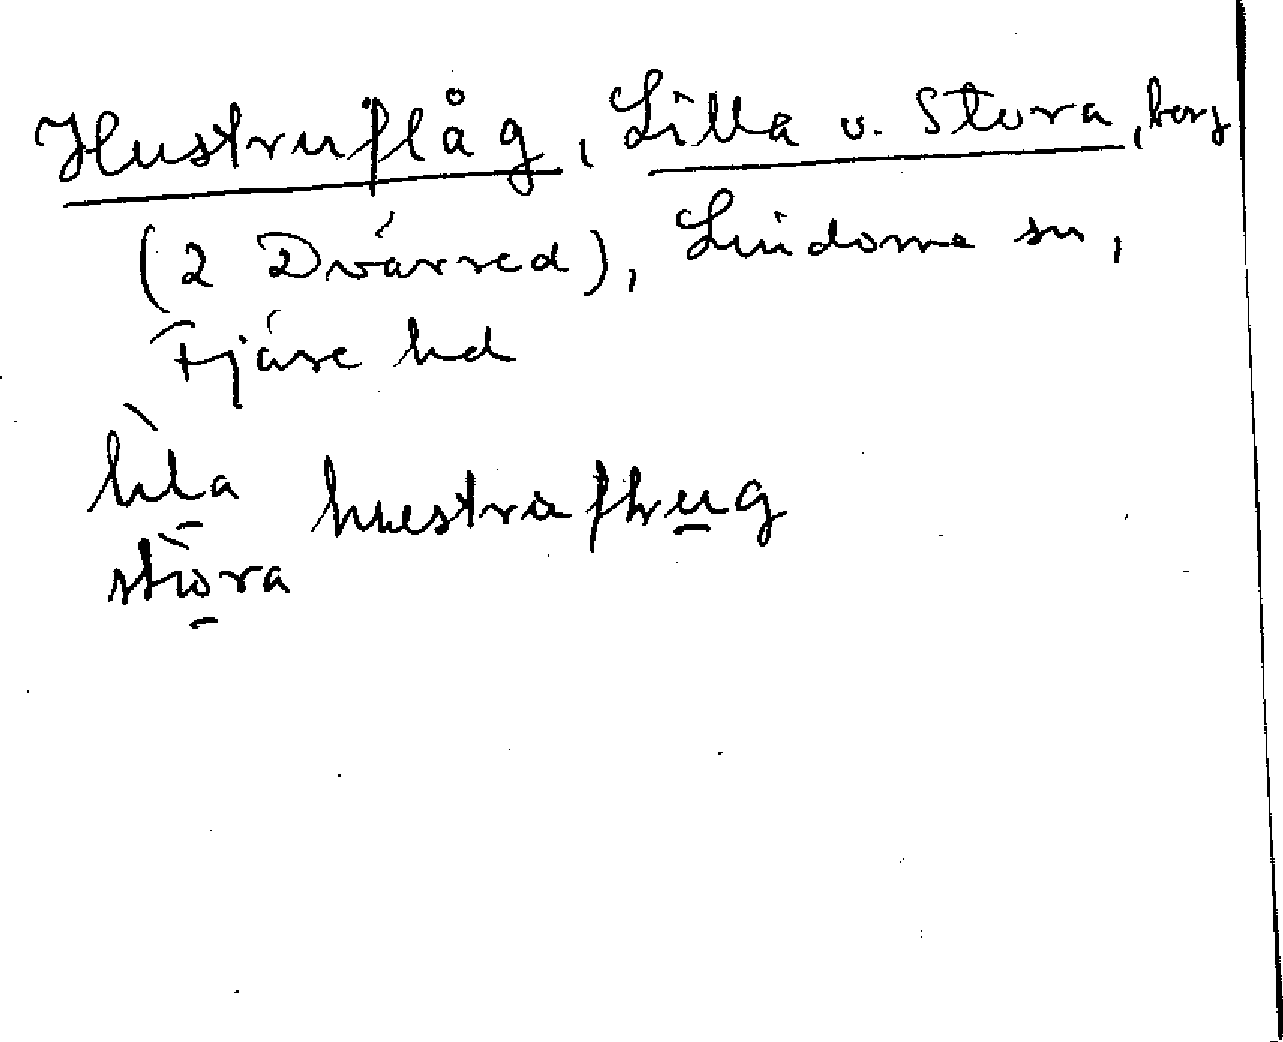 Hustruflåg, Lilla o. Stora, berg
(2 Dvärred), Lindome sn,
Fjäre hd
lìla
stòra